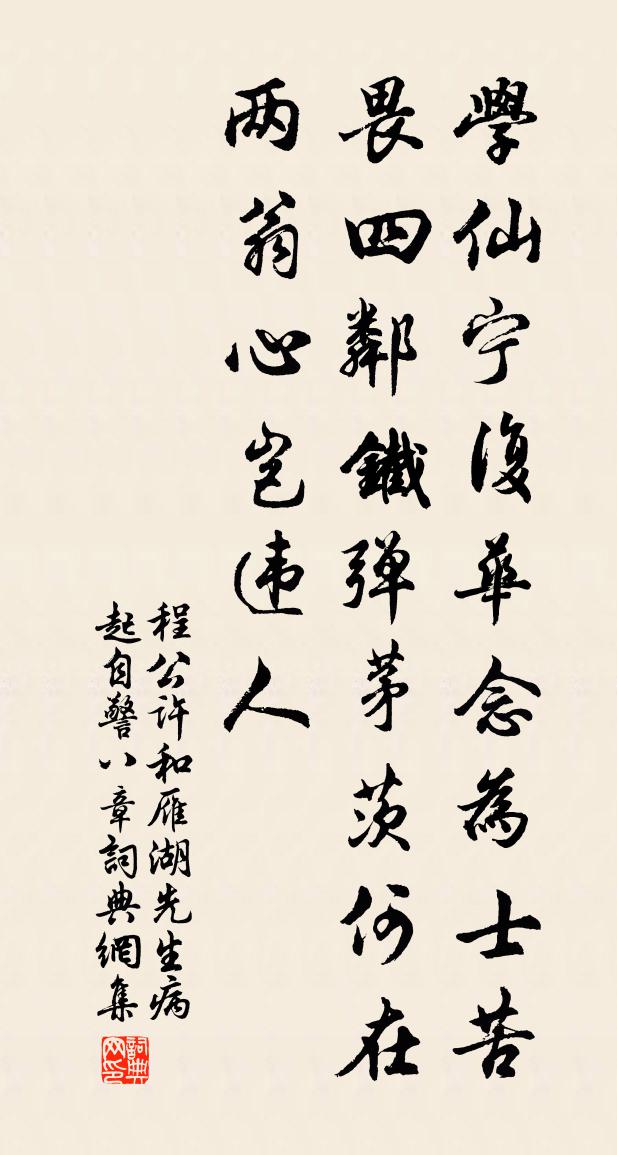 學仙宁復華念為士苦
畏四鄰鐵弹茅茨何在
两翁心岂违人
程公许和雁湖先生病
起自警八章詞典網集
詞典网印